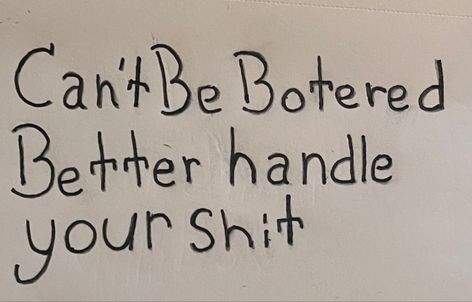 Can't Be Botered
Better handle
your shit